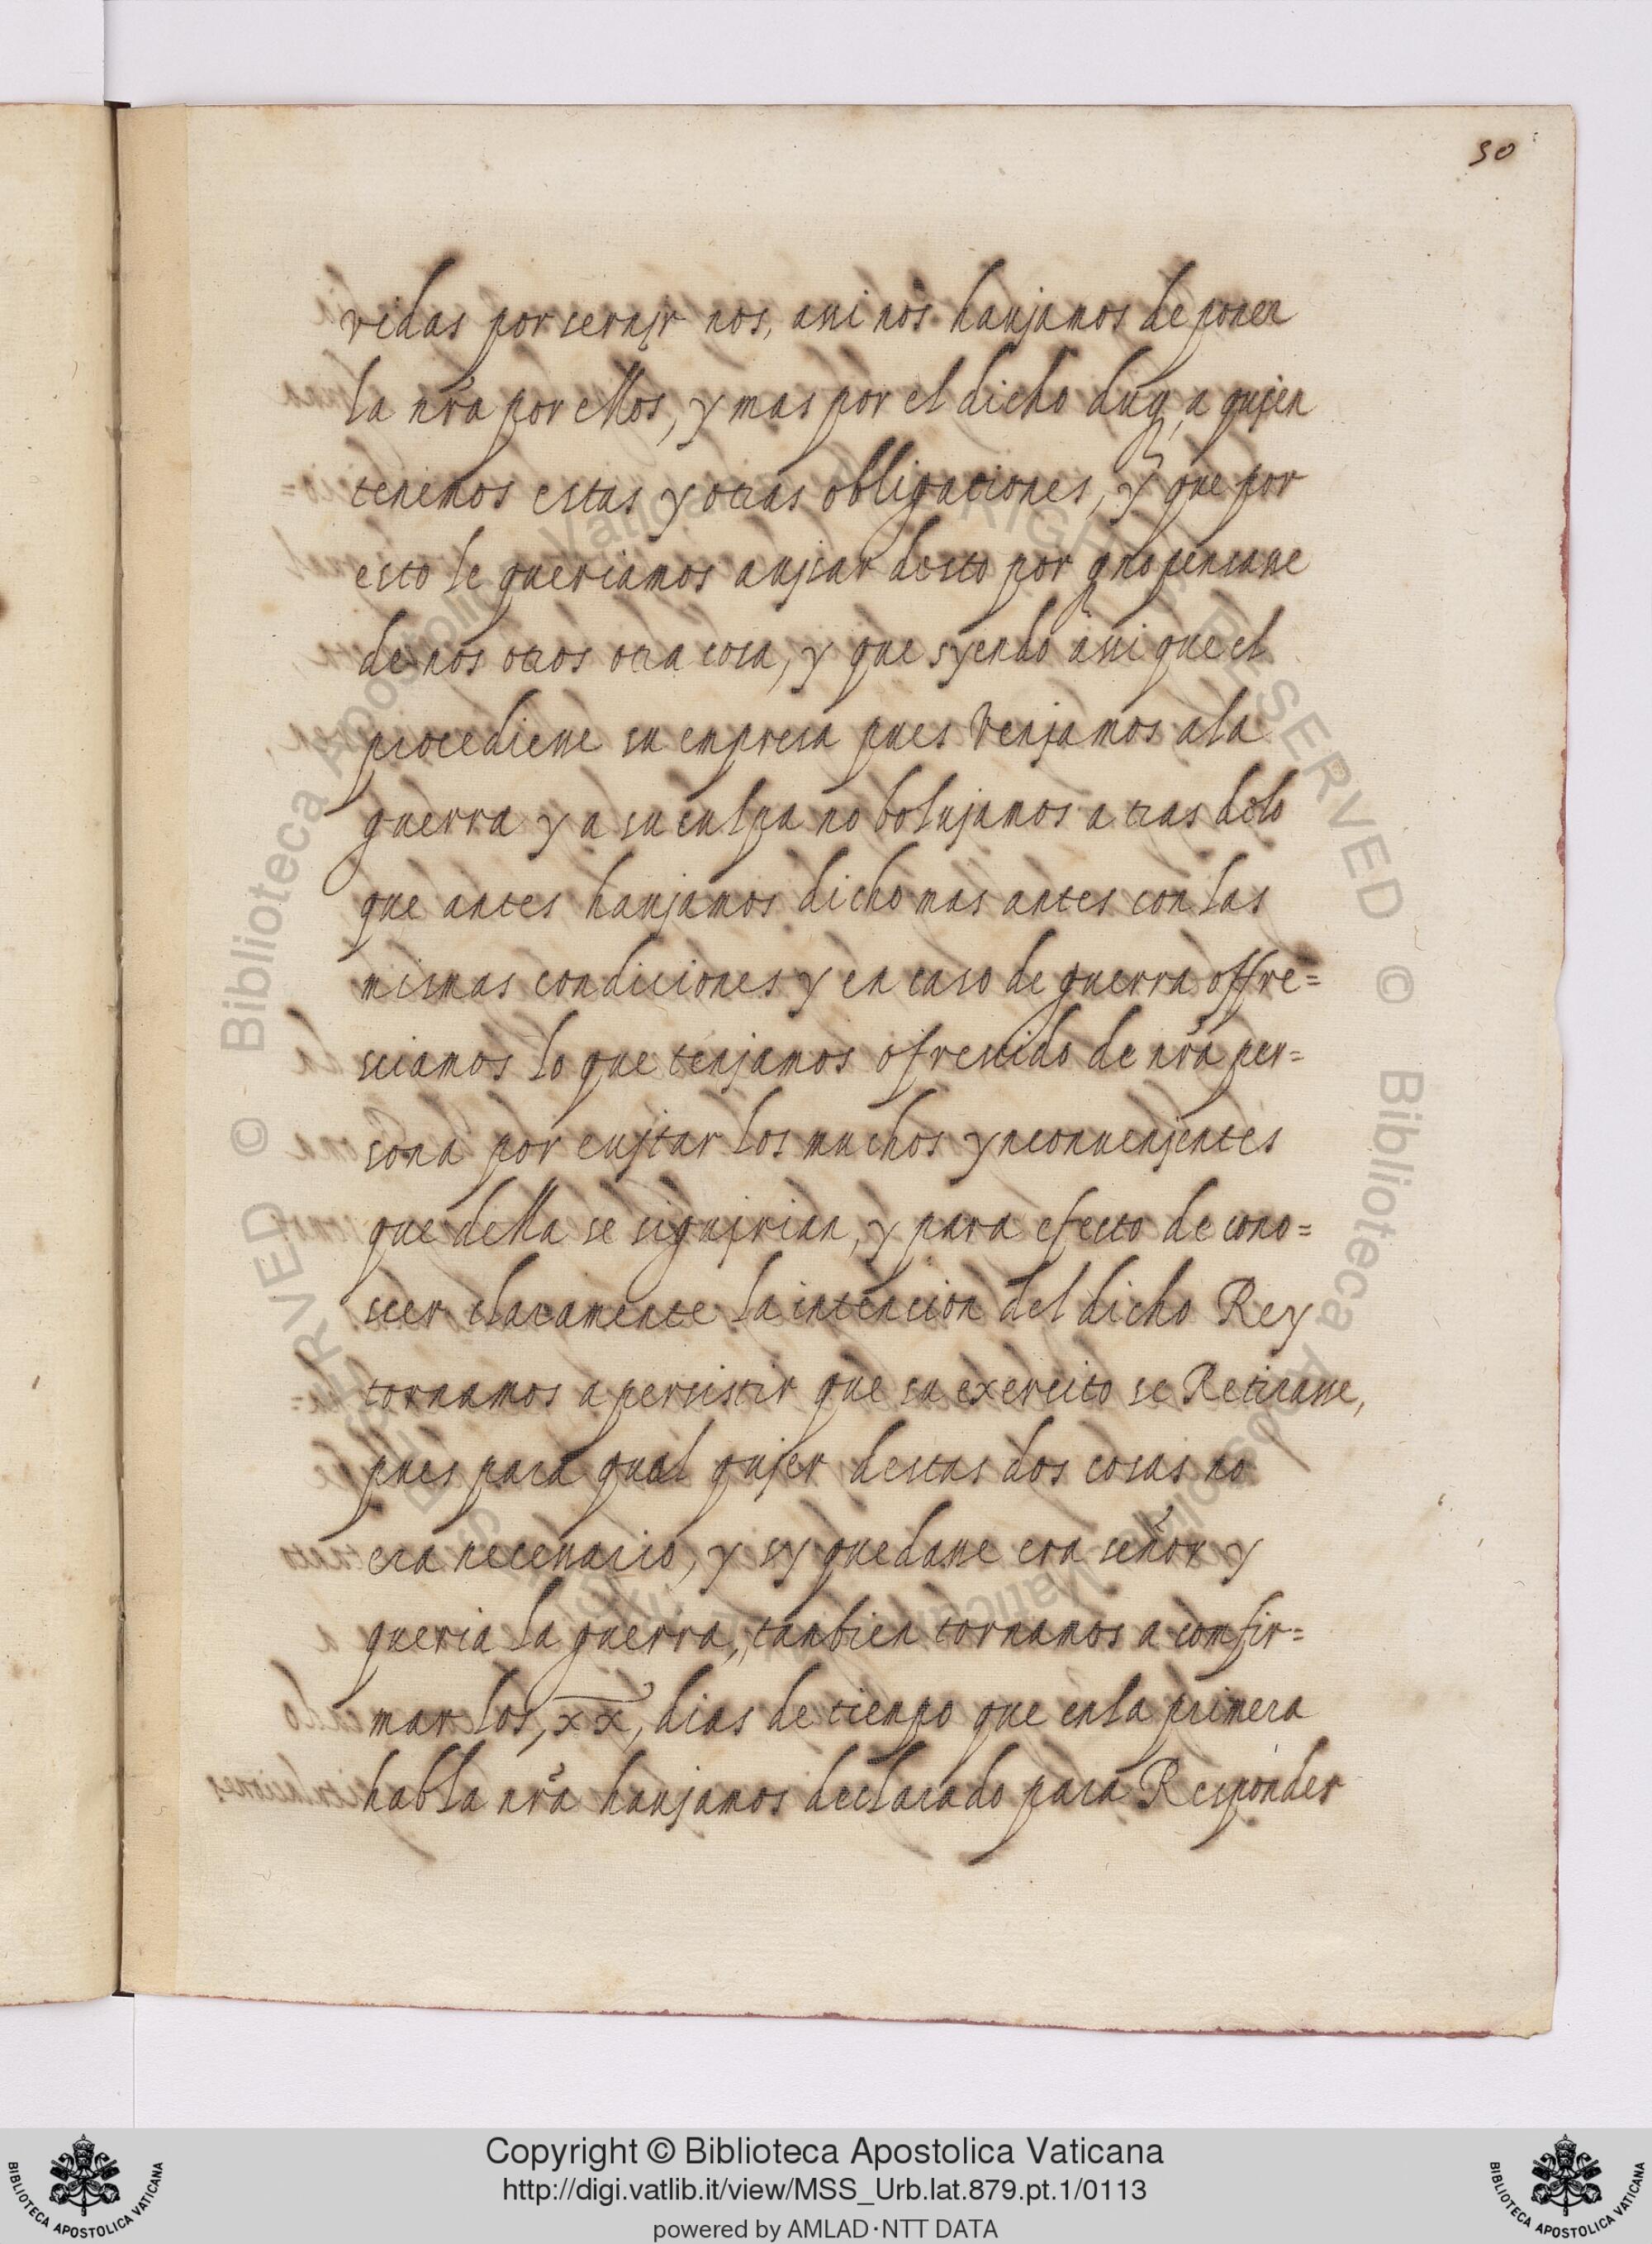 30
vidas por serujr nos, assi nos haujamos de poner
la nrã por ellos, y mas por el dicho duq̃, a qujen
tenemos estas y otras obligaciones, y que por
esto le queriamos aujsar desto por q̃ no pensasse
de nos otros otra cosa, y que syendo assi que el
procediesse su empresa pues Venjamos a la
guerra y a su culpa no bolujamos a tras delo
que antes haujamos dicho mas antes con las
mismas condiciones y en caso de guerra offre=
sciamos lo que tenjamos ofrescido de nrã per=
sona por eujtar los muchos ynconuenjentes
que della se sigujrian, y para efecto de cono=
scer claramente la intencion del dicho Rey
tornamos a persistir que su exercito se Retirasse,
pues para qual qujer destas dos cosas no
era necessario, y sy quedasse era señor y
queria la guerra, tanbien tornamos a confir=
mar los, xx, dias de tienpo que en la primera
habla nrã haujamos declarado para Responder
© Biblioteca Apostolica Vaticana
RESERVED
Copyright © Biblioteca Apostolica Vaticana
http://digi.vatlib.it/view/MSS_Urb.lat.879.pt.1/0113
powered by AMLAD·NTT DATA
BIBLIOTECA APOSTOLICA VATICANA
BIBLIOTECA APOSTOLICA VATICANA